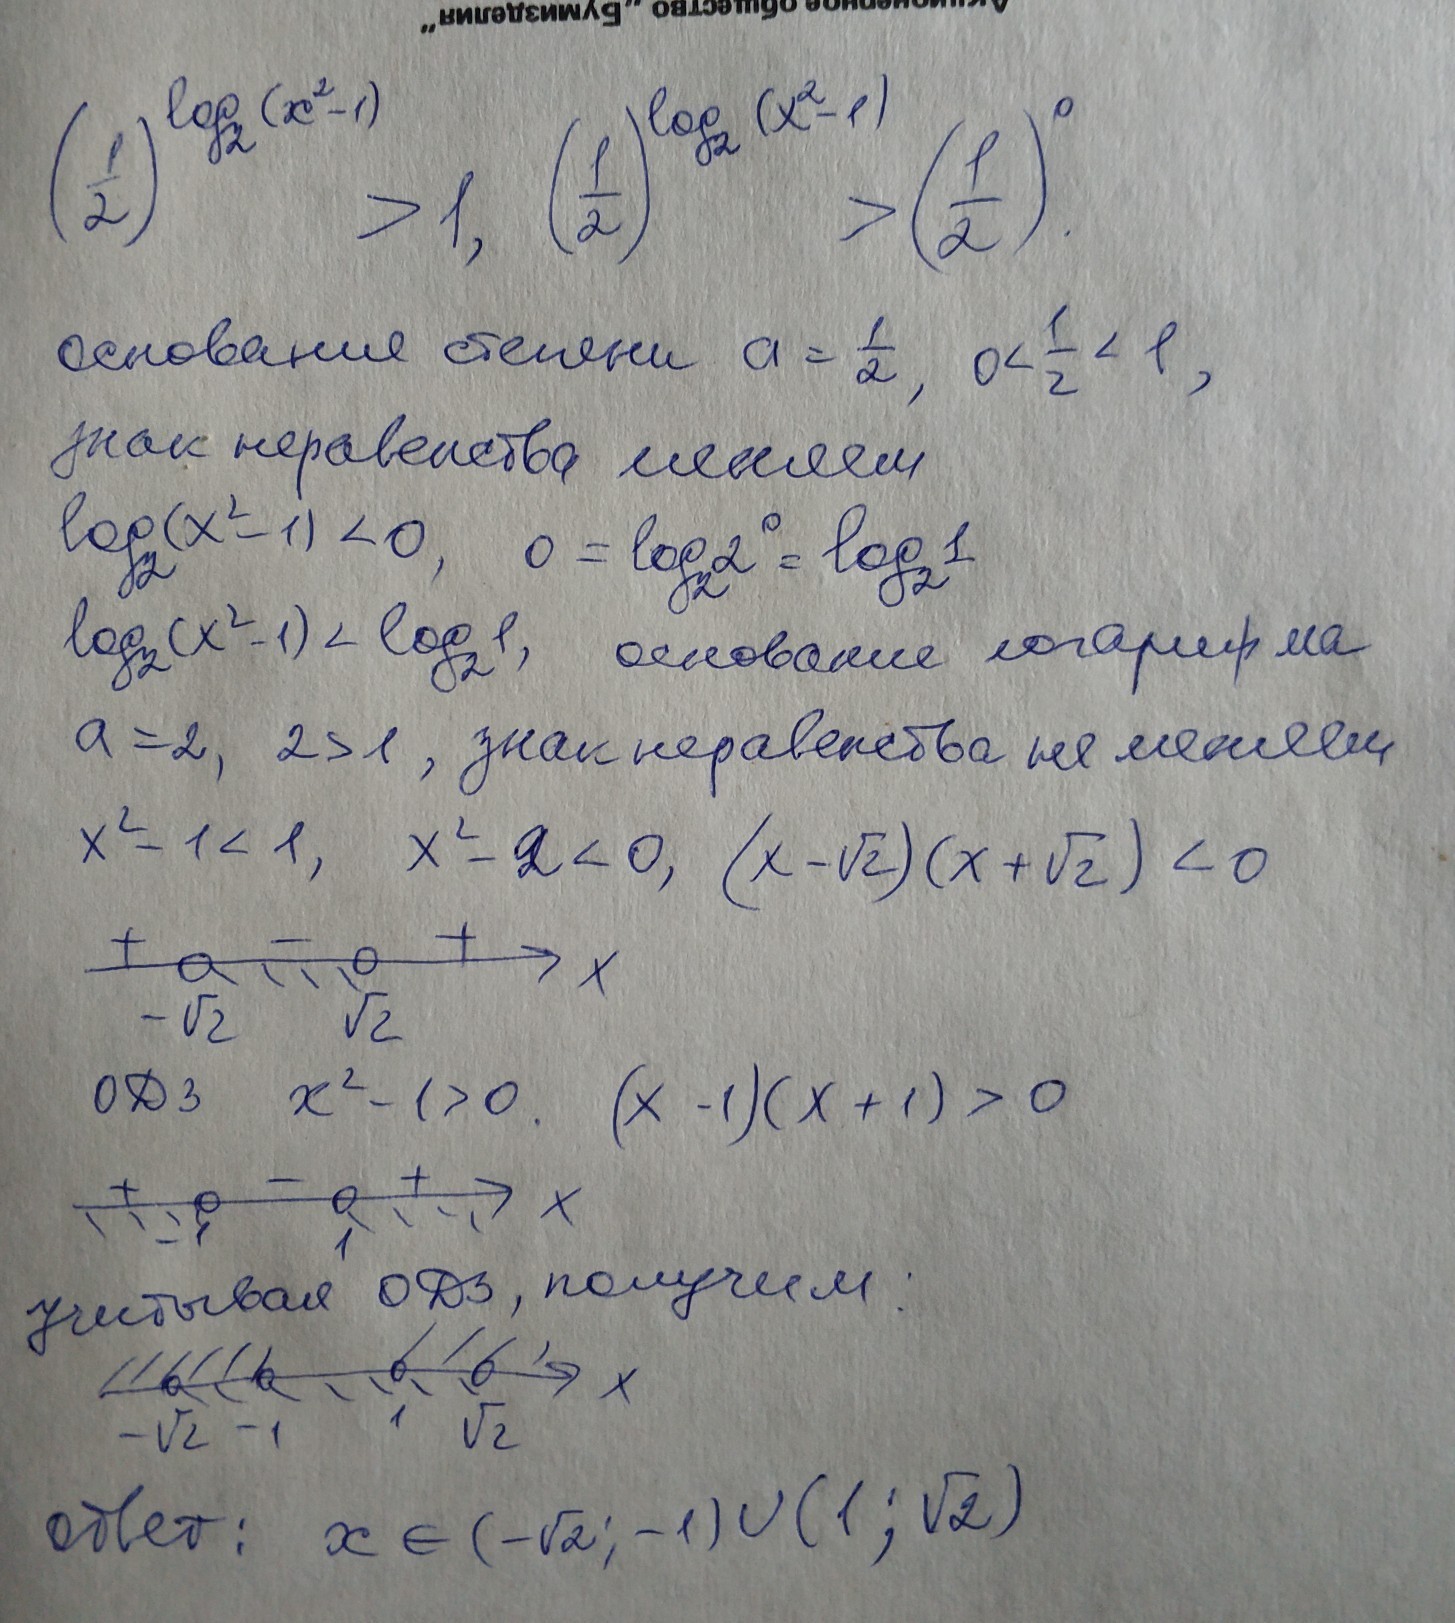 Акционерное общество „Бумизделия"
(1/2)^log₂(x²-1) > 1, (1/2)^log₂(x²-1) > (1/2)⁰.
основание степени a = 1/2, 0 < 1/2 < 1,
знак неравенства меняем
log₂(x²-1) < 0, 0 = log₂2⁰ = log₂1
log₂(x²-1) < log₂1, основание логарифма
a = 2, 2 > 1, знак неравенства не меняем
x² - 1 < 1, x² - 2 < 0, (x - √2)(x + √2) < 0
+ - + x
-√2 √2
ОДЗ x² - 1 > 0. (x - 1)(x + 1) > 0
+ - + x
-1 1
учитывая ОДЗ, получим:
x
-√2 -1 1 √2
ответ: x ∈ (-√2; -1) ∪ (1; √2)